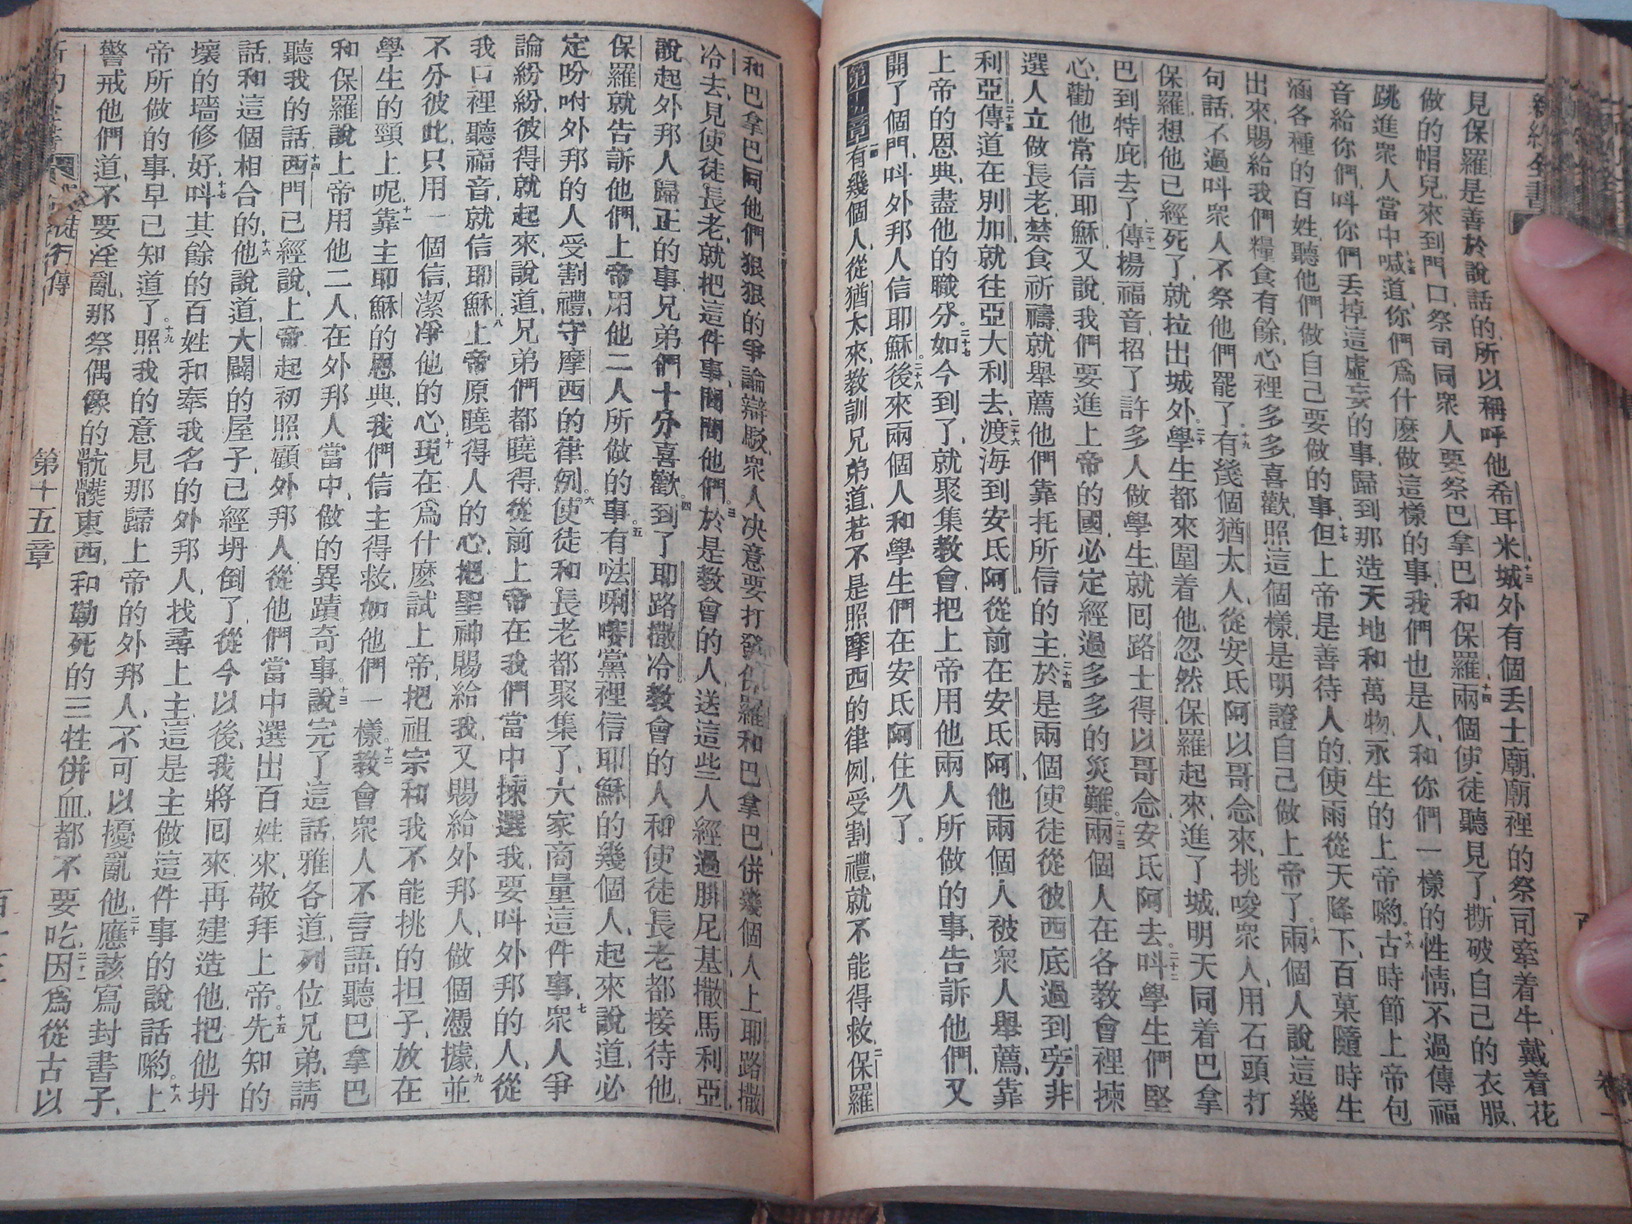 新約全書
見保羅是善於說話的所以稱呼他希耳米城外有個丟士廟廟裡的祭司牽着牛戴着花
做的帽兒來到門口祭司同衆人要祭巴拿巴和保羅兩個使徒聽見了撕破自己的衣服
跳進衆人當中喊道你們爲什麽做這樣的事我們也是人和你們一樣的性情不過傳福
音給你們呌你們丟掉這虛妄的事歸到那造天地和萬物永生的上帝喲古時節上帝包
涵各種的百姓聽他們做自己要做的事但上帝是善待人的使雨從天降下百菓隨時生
出來賜給我們糧食有餘心裡多多喜歡照這個樣是明證自己做上帝了兩個人說這幾
句話不過呌衆人不祭他們罷了有幾個猶太人從安氏阿以哥念來挑唆衆人用石頭打
保羅想他已經死了就拉出城外學生都來圍着他忽然保羅起來進了城明天同着巴拿
巴到特庇去了傳揚福音招了許多人做學生就回路士得以哥念安氏阿去呌學生們堅
心勸他常信耶穌又說我們要進上帝的國必定經過多多的災難兩個人在各教會裡揀
選人立做長老禁食祈禱就舉薦他們靠托所信的主於是兩個使徒從彼西底過到旁非
利亞傳道在別加就往亞大利去渡海到安氏阿從前在安氏阿他兩個人被衆人舉薦靠
上帝的恩典盡他的職分如今到了就聚集教會把上帝用他兩人所做的事告訴他們又
開了個門呌外邦人信耶穌後來兩個人和學生們在安氏阿住久了
第十五章有幾個人從猶太來教訓兄弟道若不是照摩西的律例受割禮就不能得救保羅
和巴拿巴同他們狠狠的爭論辯駁衆人决意要打發保羅和巴拿巴併幾個人上耶路撒
冷去見使徒長老就把這件事問問他們於是教會的人送這些人經過腓尼基撒馬利亞
說起外邦人歸正的事兄弟們十分喜歡到了耶路撒冷教會的人和使徒長老都接待他
保羅就告訴他們上帝用他二人所做的事有㗙唎㘔黨裡信耶穌的幾個人起來說道必
定吩咐外邦的人受割禮守摩西的律例使徒和長老都聚集了大家商量這件事衆人爭
論紛紛彼得就起來說道兄弟們都曉得從前上帝在我們當中揀選我要呌外邦的人從
我口裡聽福音就信耶穌上帝原曉得人的心把聖神賜給我又賜給外邦人做個憑據並
不分彼此只用一個信潔凈他的心現在爲什麽試上帝把祖宗和我不能挑的担子放在
學生的頸上呢靠主耶穌的恩典我們信主得救如他們一樣教會衆人不言語聽巴拿巴
和保羅說上帝用他二人在外邦人當中做的異蹟奇事說完了這話雅各道列位兄弟請
聽我的話西門已經說上帝起初照顧外邦人從他們當中選出百姓來敬拜上帝先知的
話和這個相合的他說道大闢的屋子已經坍倒了從今以後我將回來再建造他把他坍
壞的墻修好呌其餘的百姓和奉我名的外邦人找尋上主這是主做這件事的說話喲上
帝所做的事早已知道了照我的意見那歸上帝的外邦人不可以擾亂他應該寫封書子
警戒他們道不要淫亂那祭偶像的骯髒東西和勒死的三牲併血都不要吃因爲從古以
第十五章